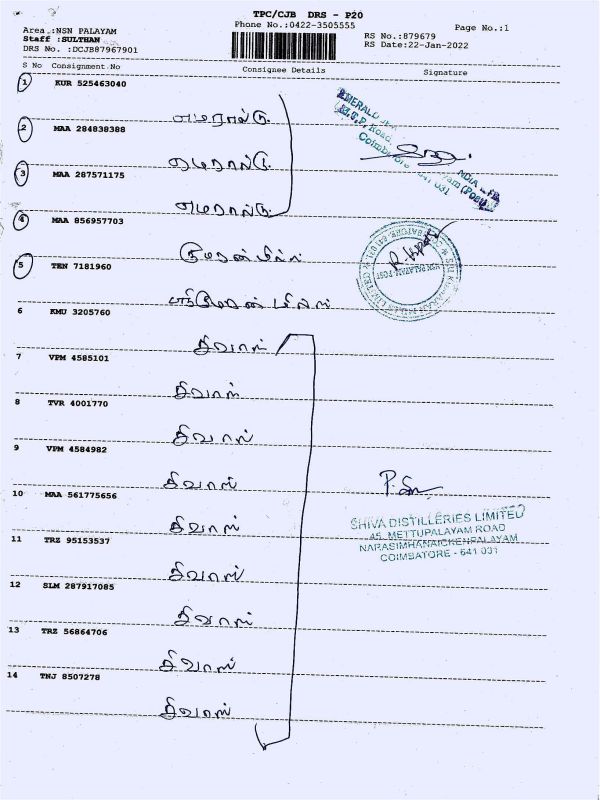 TPC/CJB DRS - P20
Phone No.:0422-3505555
Page No.:1
Area :NSN PALAYAM
Staff :SULTHAN
DRS No. :DCJB87967901
RS No.:879679
RS Date:22-Jan-2022
S No Consignment No Consignee Details Signature
1 KUR 525463040
எமரால்டு
2 MAA 284838388
எமரால்டு
3 MAA 287571175
எமரால்டு
4 MAA 856957703
குமரன் மில்ஸ்
5 TEN 7181960
மில்ஸ்
6 KMU 3205760
சிவாஸ்
7 VPM 4585101
சிவாஸ்
8 TVR 4001770
சிவாஸ்
9 VPM 4584982
சிவாஸ்
10 MAA 561775656
சிவாஸ்
11 TRZ 95153537
சிவாஸ்
12 SLM 287917085
சிவாஸ்
13 TRZ 56864706
சிவாஸ்
14 TNJ 8507278
சிவாஸ்
EMERALD
M.T.P. Road,
(Post)
641 031
NSN PALAYAM POST
SHIVA DISTILLERIES LIMITED
45, METTUPALAYAM ROAD
NARASIMHANAICKENPALAYAM
COIMBATORE - 641 031